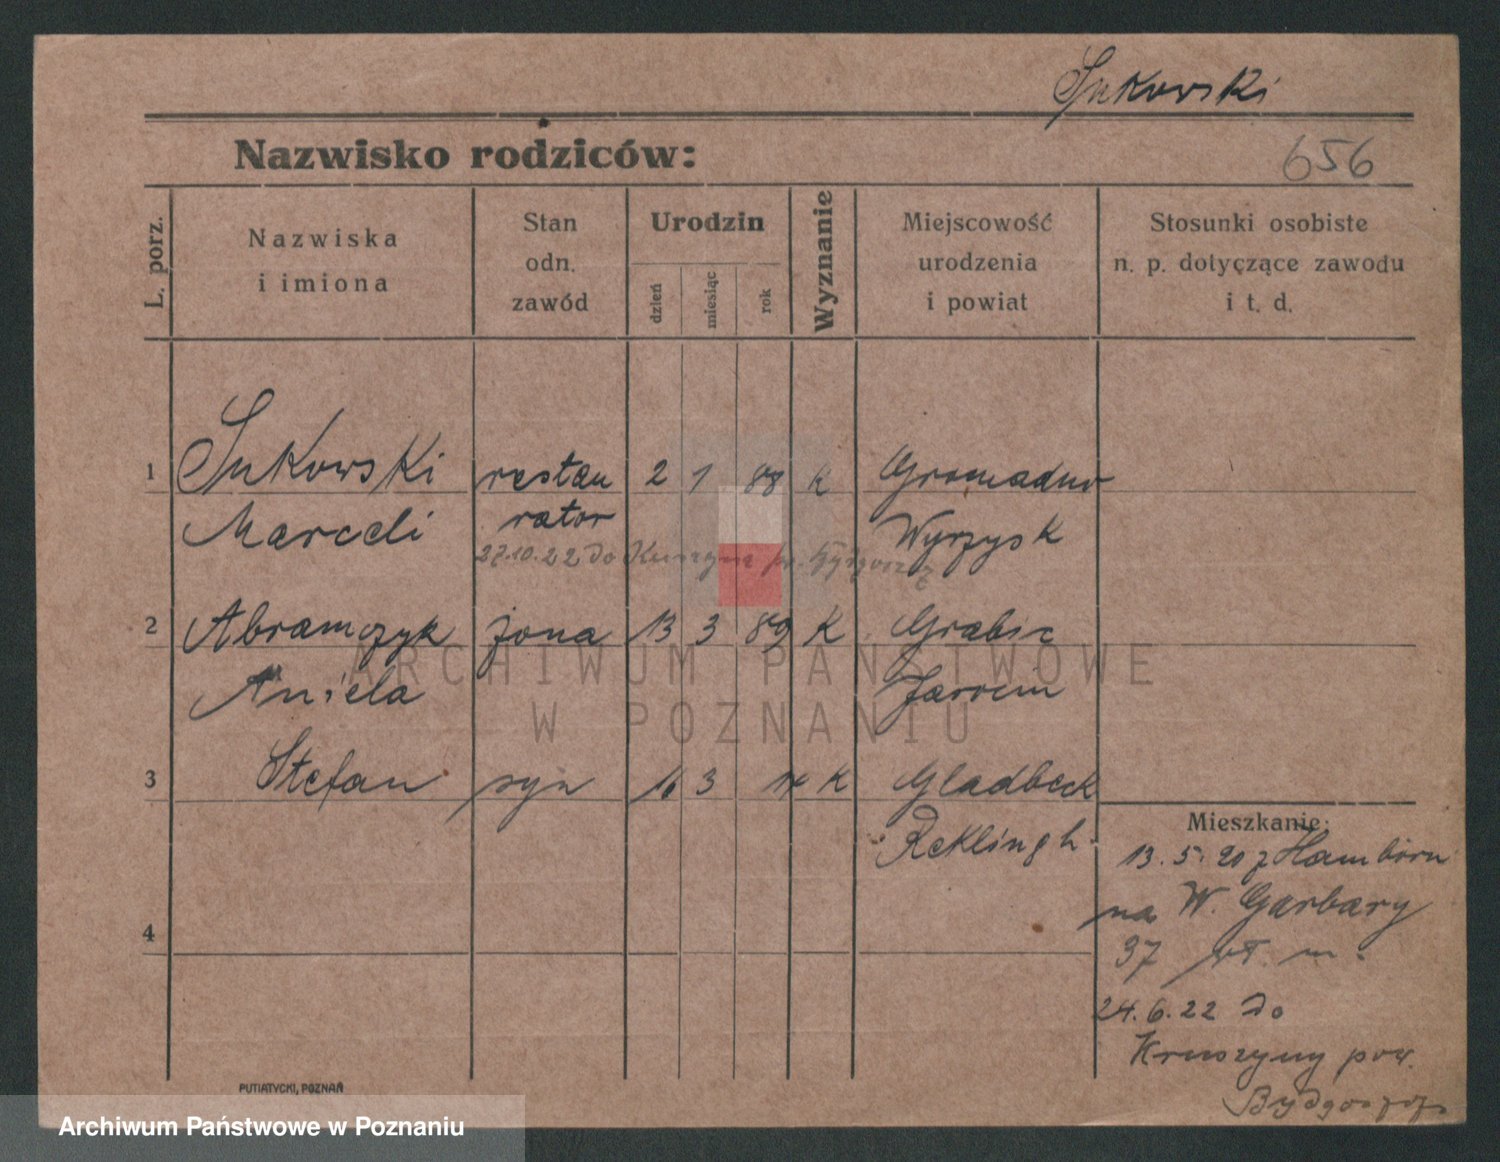 Sukowski
Nazwisko rodziców:
656
L. porz.
Nazwiska
i imiona
Stan
odn.
zawód
Urodzin
dzień
miesiąc
rok
Wyznanie
Miejscowość
urodzenia
i powiat
Stosunki osobiste
n. p. dotyczące zawodu
i t. d.
1 Sukowski restau 2 1 88 K Gromadno
Marceli rator Wyrzysk
27.10.22 do Kruszyna pw. Bydgoszcz
2 Abramczyk żona 13 3 89 K Grabie
Aniela Jarocin
3 Stefan syn 16 3 14 K Gladbeck
Reklingh.
Mieszkanie:
13. 5. 20 z Hamborn
na W. Garbary
37 wł. m.
4
24. 6. 22 do
Kruszyny pow.
Bydgoszcz
PUTIATYCKI, POZNAŃ
ARCHIWUM PAŃSTWOWE
W POZNANIU
Archiwum Państwowe w Poznaniu